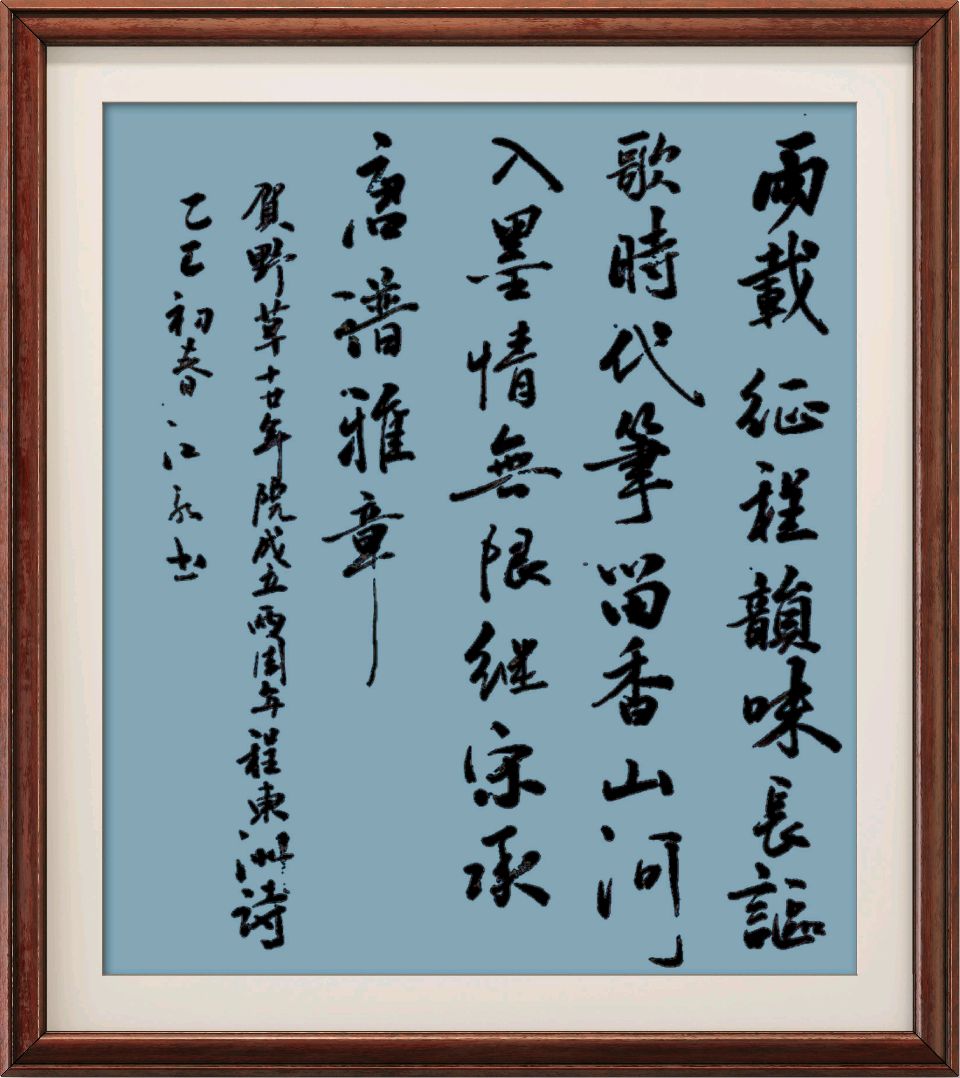 兩載征程韻味長謳
歌時代筆留香山河
入墨情無限继宋承
唐譜雅章
賀野草十廿年院成立兩周年程東洲詩
乙巳初春江永书